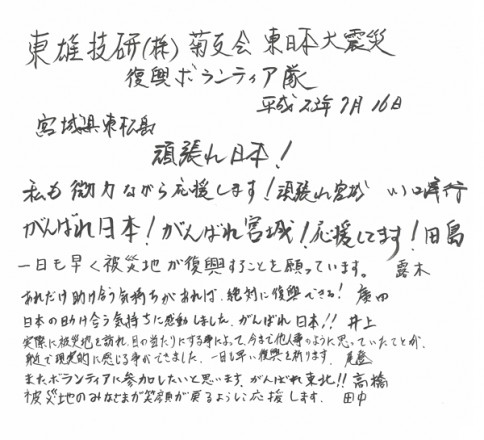 東雄技研(株) 菊友会 東日本大震災
復興ボランティア隊
平成23年7月16日
宮城県東松島
頑張れ日本!
私も微力ながら応援します!頑張れ宮城
がんばれ日本!がんばれ宮城!応援してます!田島
一日も早く被災地が復興することを願っています。 露木
あれだけ助け合う気持ちがあれば、絶対に復興できる! 廣田
日本の助け合う気持ちに感動しました、がんばれ日本!! 井上
実際に被災地を訪れ、目の当たりにする事によって、今まで他人事のように思っていたことが、
身近で現実的に感じる事ができました。一日も早い復興を祈ります。
またボランティアに参加したいと思います。がんばれ東北!! 高橋
被災地のみなさまが笑顔が戻るように応援します。 田中